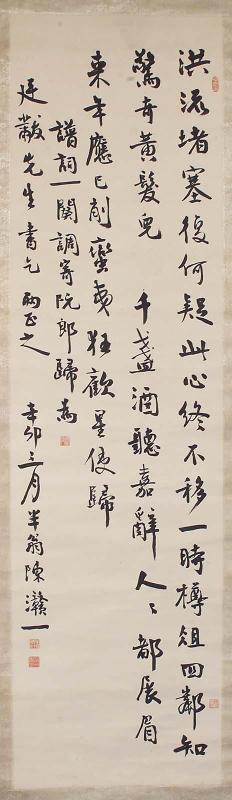 洪流堵塞復何疑此心終不移一時樽俎四鄰知
驚奇黃髮兒　千盞酒聽嘉辭人人都展眉
來年應已削蠻夷狂歡星使歸
譜詞一闋調寄阮郎歸為
廷黻先生書乞兩正之　辛卯三月半翁陳灨一